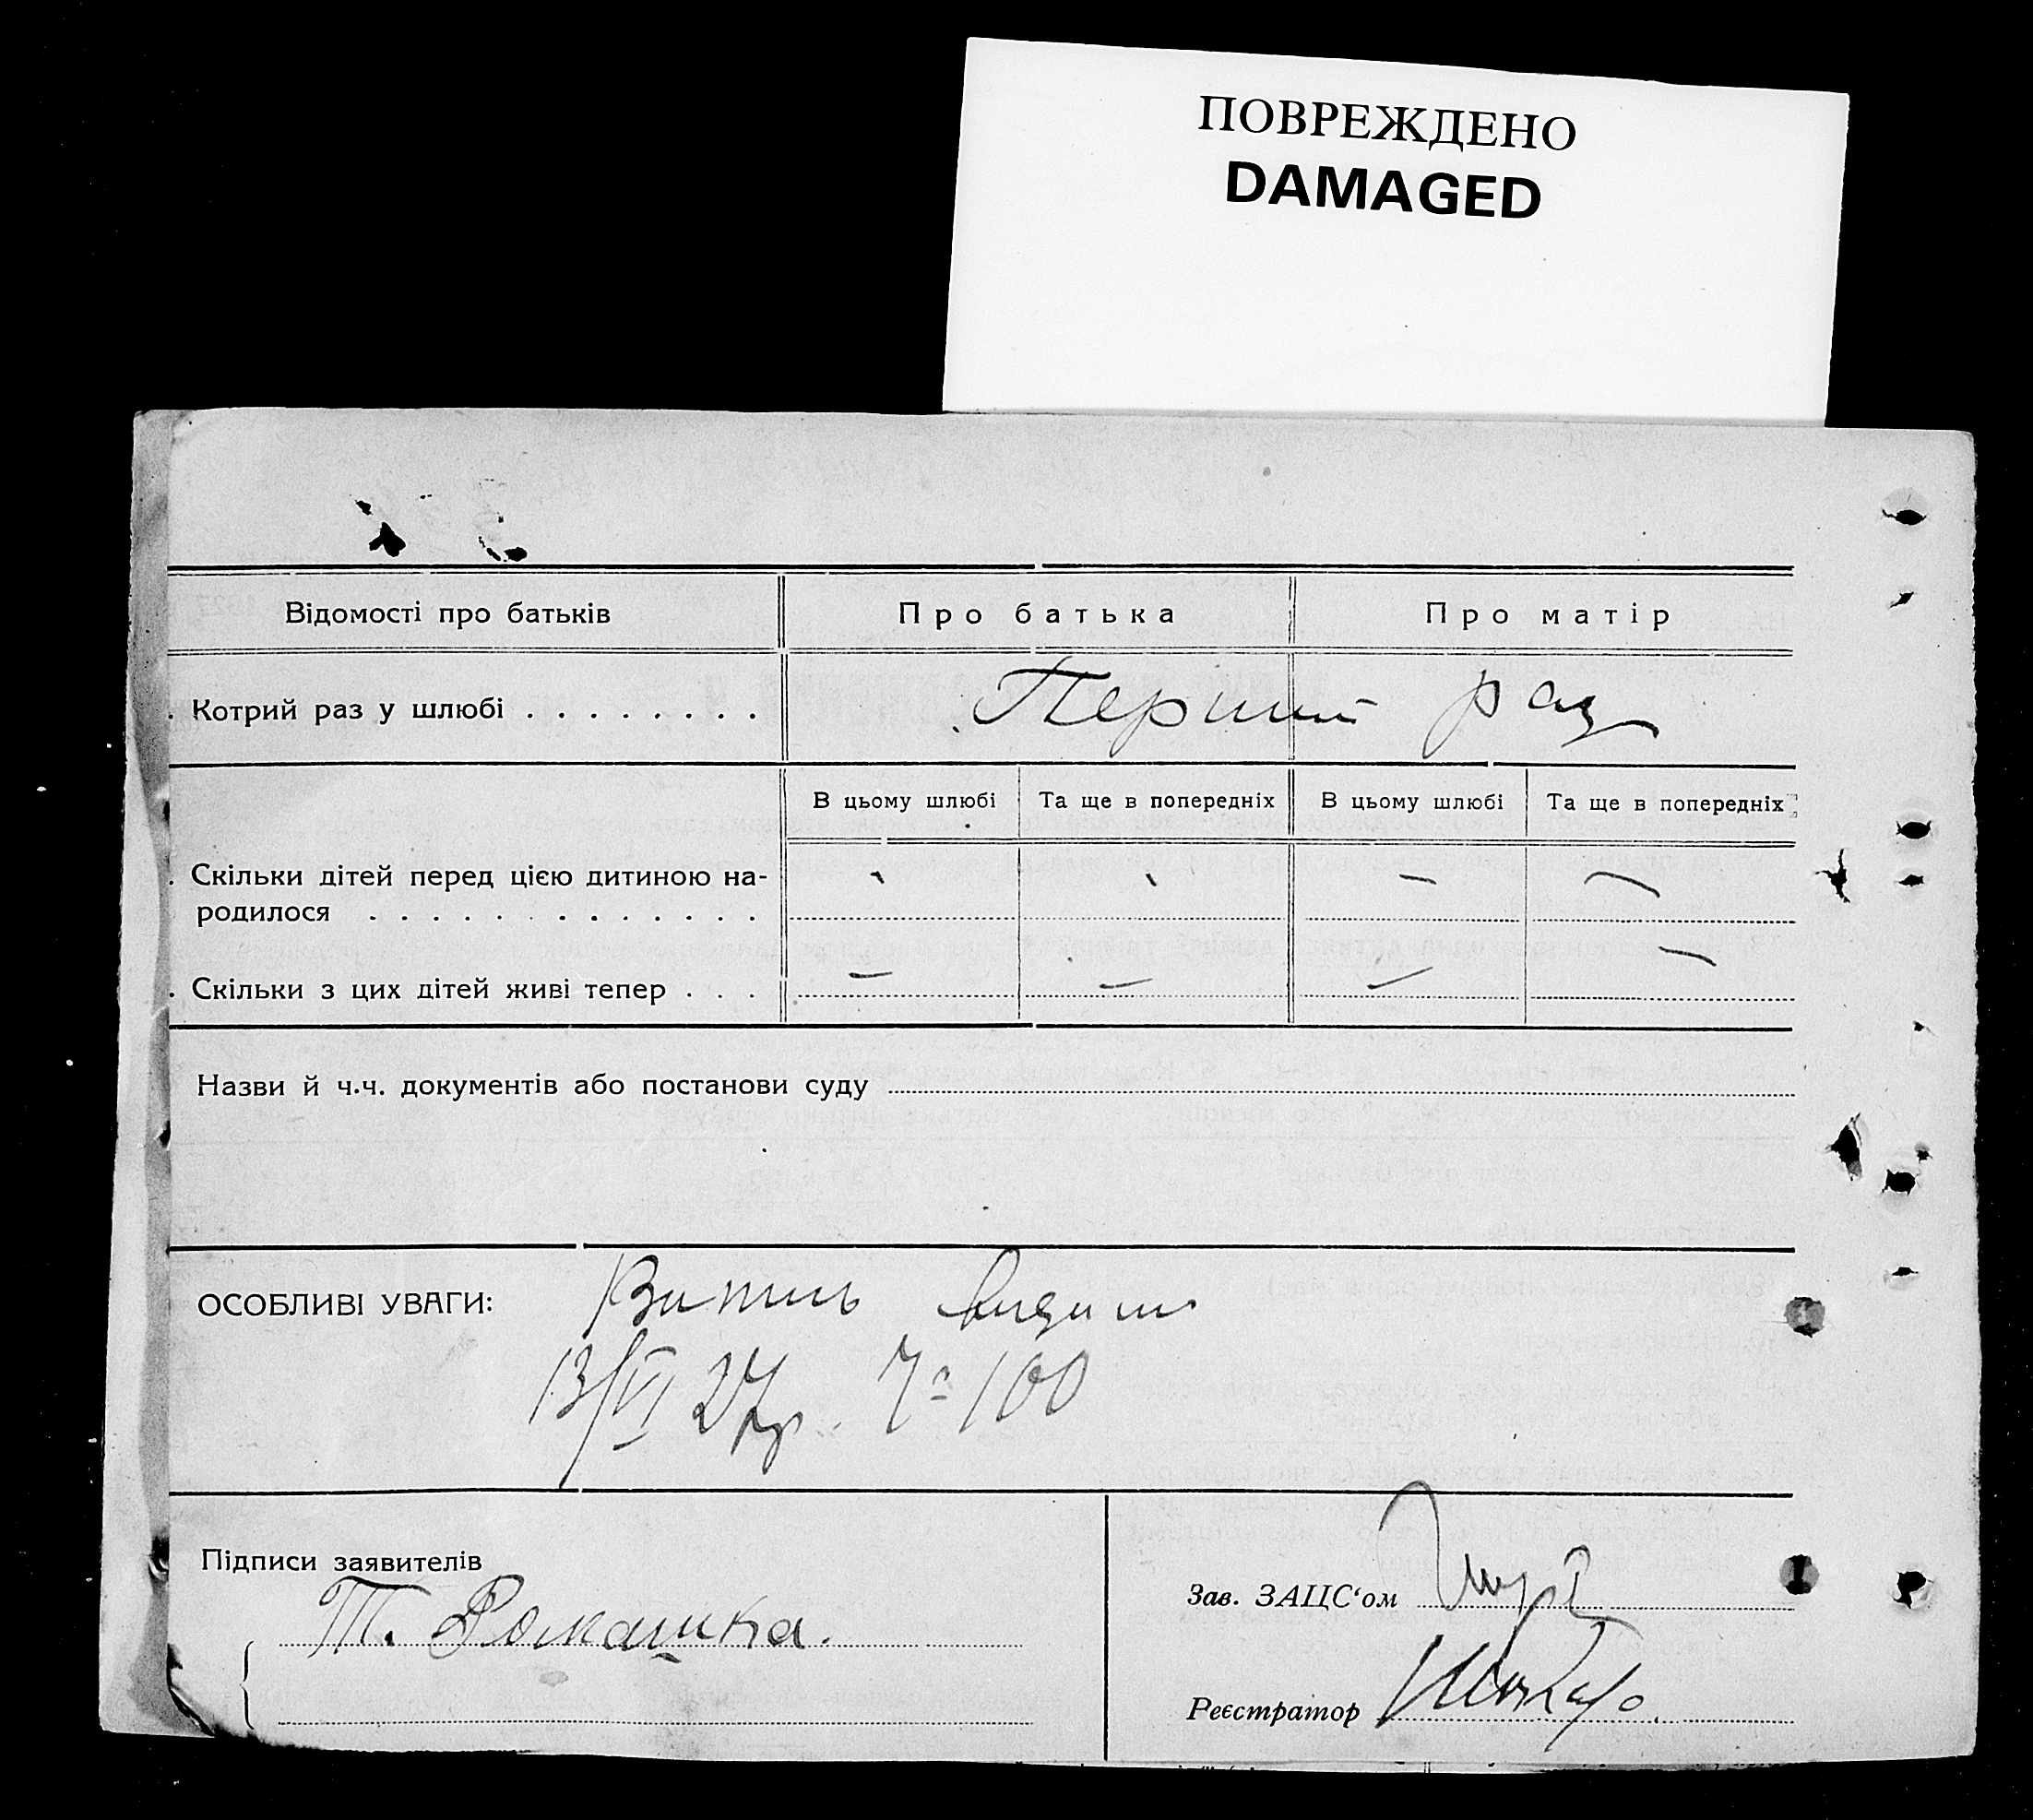 ПОВРЕЖДЕНО
DAMAGED
Відомості про батьків
Про батька
Про матір
Котрий раз у шлюбі . . . . . . . .
Перший раз
В цьому шлюбі
Та ще в попередніх
В цьому шлюбі
Та ще в попередніх
Скільки дітей перед цією дитиною на-
родилося . . . . . . . . . . . . .
Скільки з цих дітей живі тепер . . .
Назви й ч.ч. документів або постанови суду
ОСОБЛИВІ УВАГИ:
13/VI 27р. 100
Підписи заявителів
Т. Ромашка.
Зав. ЗАЦС‘ом
Реєстратор